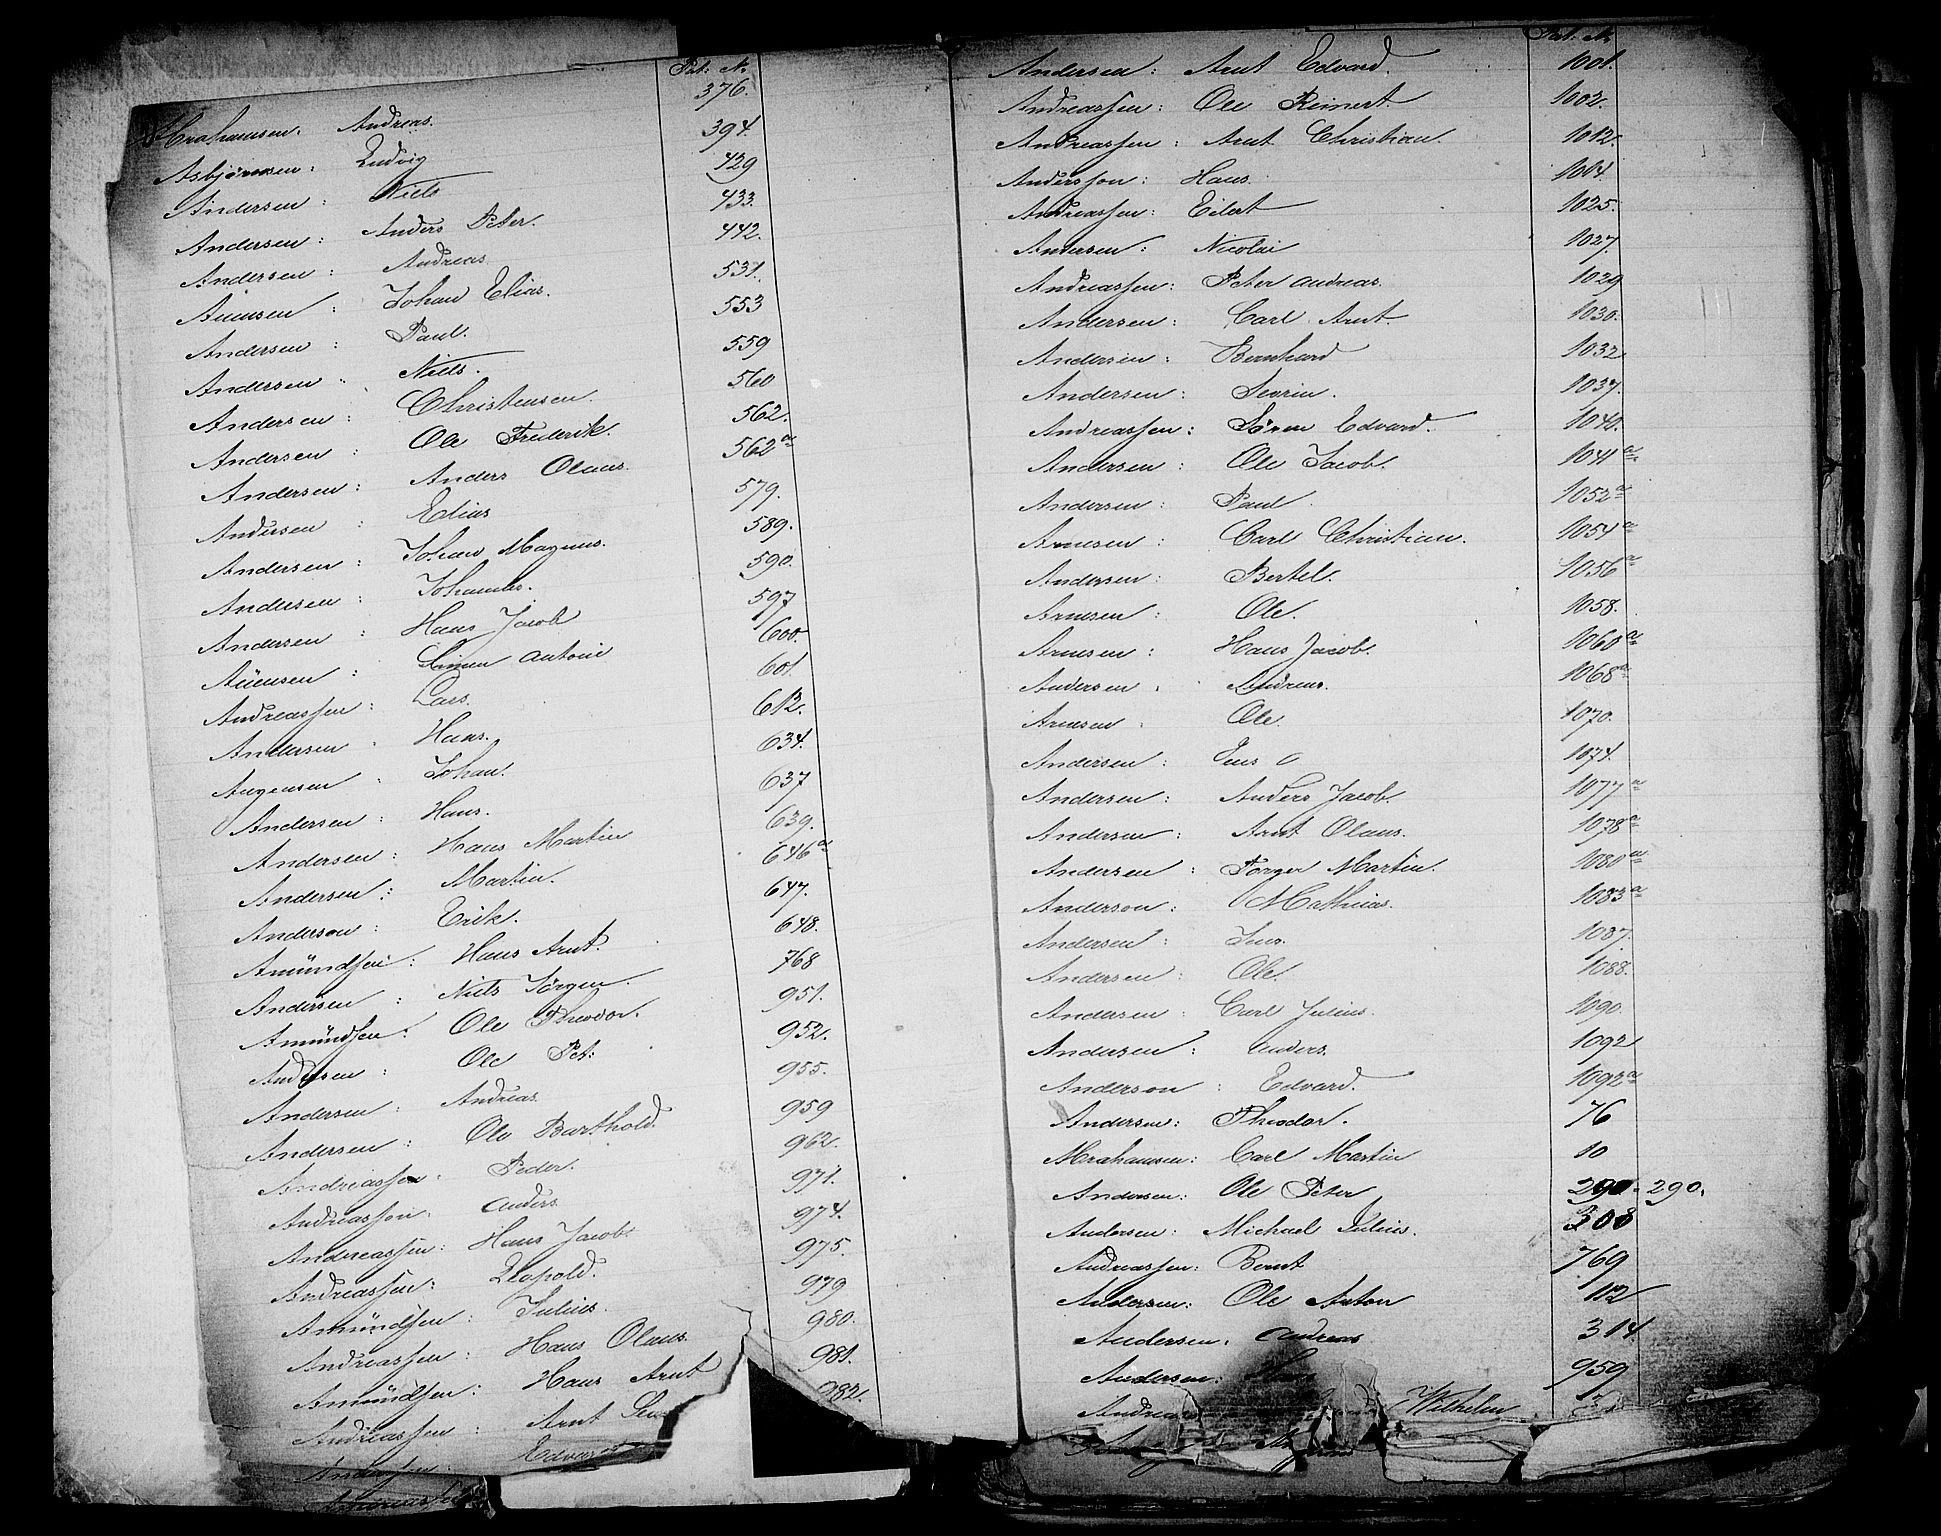 Pat. N.
Abrahamsen. Andreas. 376.
Asbjørnsen: Ludvig 394.
Andersen: Niels 429
Andersen: Anders Peter. 433.
Andersen: Andreas 442.
Anensen: Johan Elias. 531.
Andersen: Paul. 553
Andersen: Niels. 559
Andersen: Christensen. 560
Andersen: Ole Frederik. 562.
Andersen: Anders Olaus. 562a
Andersen: Elias 579.
Andersen: Johan Magnus. 589.
Andersen: Johannes. 590.
Andersen: Hans Jacob 597
Anensen: Simen Antonie 600
Andreassen: Lars. 601.
Andersen: Hans. 612.
Augensen: Johan. 634.
Andersen: Hans. 637
Andersen: Hans Martin 639.
Andersen: Martin. 646a
Anderson: Erik. 647.
Amündsen: Hans Arnt. 648.
Andersen: Niels Jørgen. 768
Amündsen: Ole Theodor. 951.
Andersen: Ole Pet: 952.
Andersen: Andreas 955.
Andersen: Ole Barthold. 959
Andreassen. Peder. 962.
Andreasson. Anders 971.
Andreassen: Hans Jacob. 974.
Andreassen: Leopold. 975.
Amündsen: Julius. 979
Andreassen: Hans Olaus. 980.
Amündsen: Hans Arnt 981.
Andreassen: Arnt 982.
Andersen: Edvard
Pat. N.
Andersen: Arnt Edvard. 1001.
Andreassen: Ole Reinert 1002.
Andreassen: Arnt Christian. 1012.
Andersson: Hans. 1014.
Andreassen: Eilert 1025.
Andersen: Nicolai 1027.
Andreassen: Peter Andreas. 1029
Andersen: Carl Arnt. 1030.
Andersen: Bernhard 1032
Andersen: Sevrin. 1037.
Andreassen: Søren Edvard. 1040.
Andersen: Ole Jacob. 1041a
Andersen: Paul 1052a
Arnesen: Carl Christian. 1054a
Andersen: Bertel. 1056a
Arnesen: Ole. 1058.
Arnesen: Hans Jacob. 1060a
Andersen: Andreas. 1068a
Arnesen: Ole. 1070.
Andersen: 1074.
Andersen: Anders Jacob. 1077a
Andersen: Arnt Olaus. 1078a
Andersen: Torger Martin. 1080a
Anderson: Mathias. 1083a
Andersen: Jens. 1087.
Andersen: Ole. 1088.
Andersen: Carl Julius. 1090.
Andersen: Anders. 1092
Anderson: Edvard. 1092a
Andersen: Theodor. 76
Abrahamsen: Carl Martin 10
Andersen: Ole Peter 290. 290.
Andersen: Michael Julius. 308
Andreassen: Bernt 769
Andersen: Ole Anton 112
Andersen. Andreas 314.
Andersen: Hans 959
Wilhelm